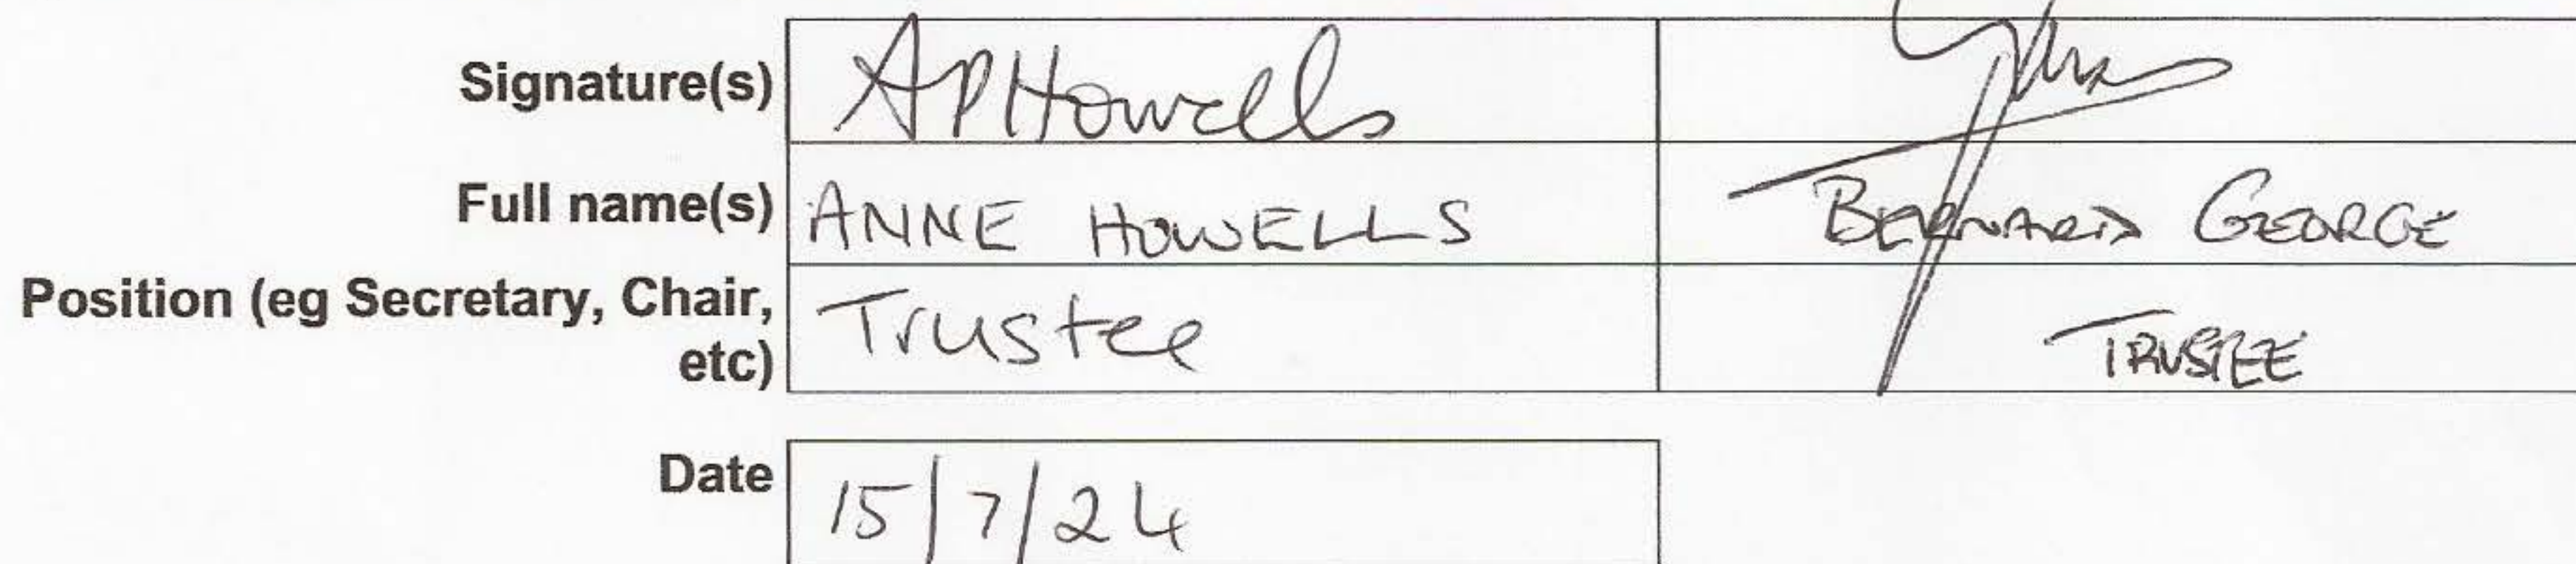 Signature(s) APHowells
Full name(s) ANNE HOWELLS BERNARD GEORGE
Position (eg Secretary, Chair,
etc) Trustee TRUSTEE
Date 15/7/24